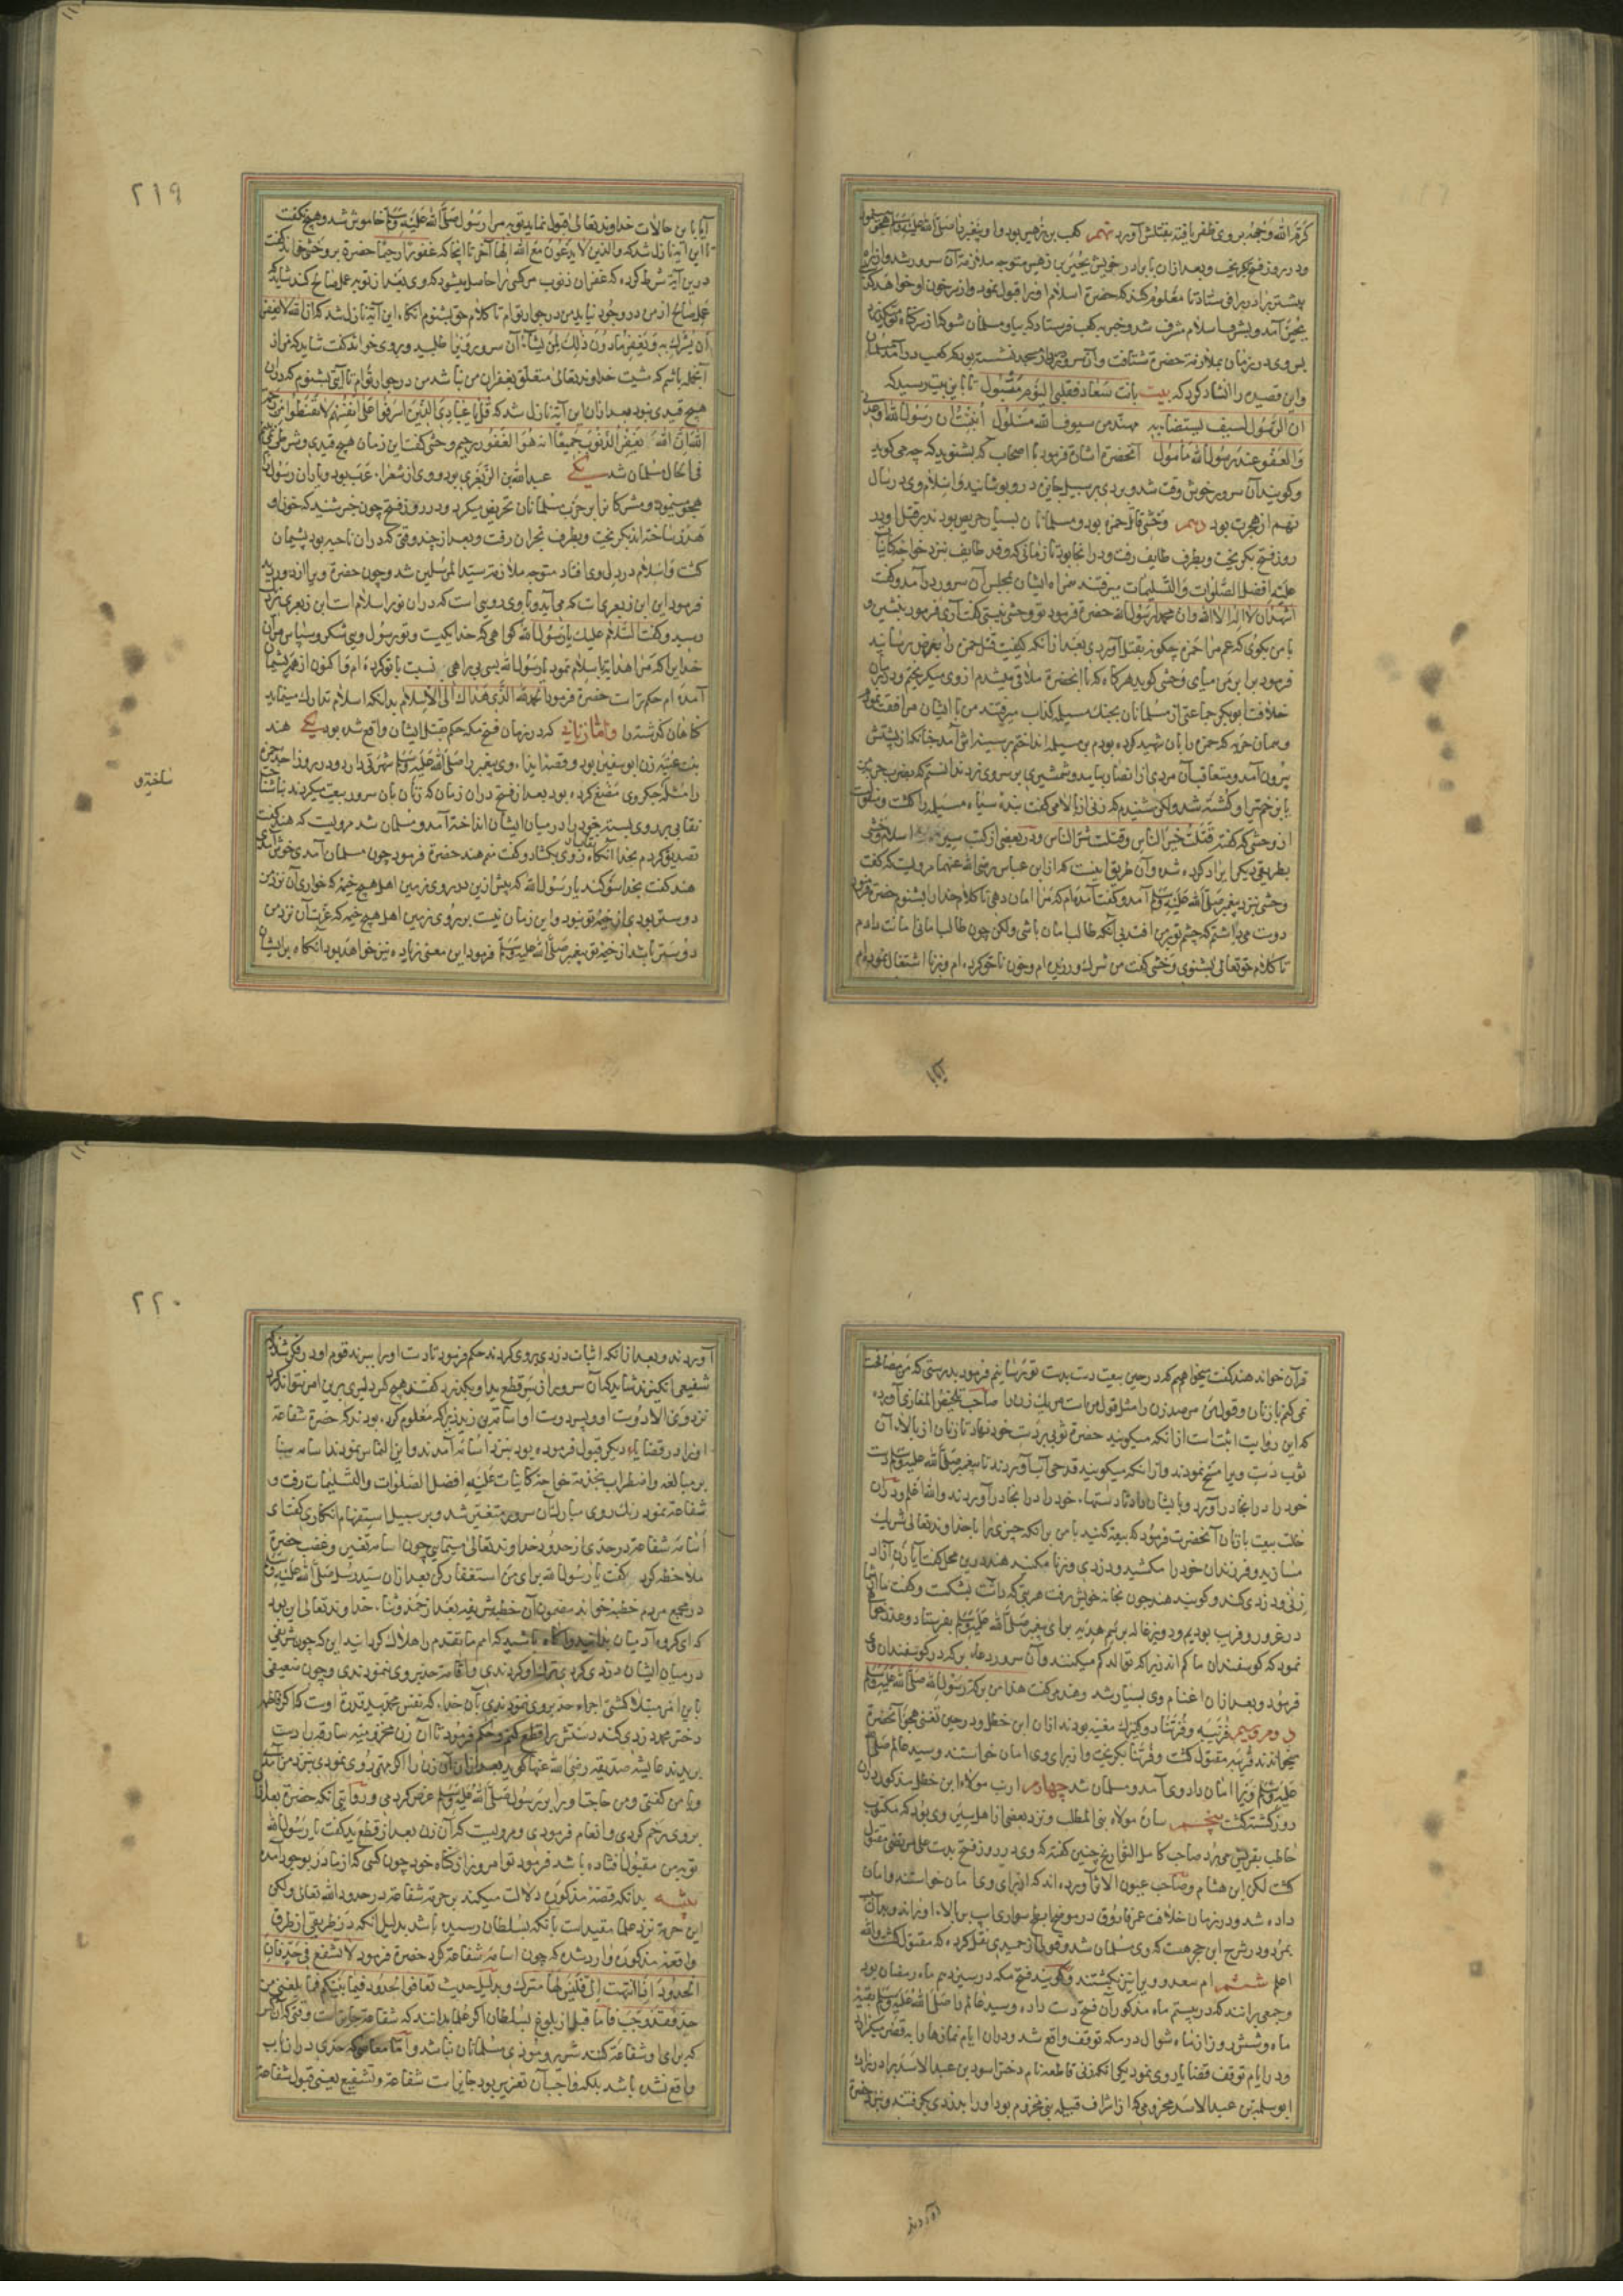 كرم الله وجهه بر وی ظفر یافته بقتلش آورد نهم کعب بن زهیر بود و او پیغمبر را صلی الله علیه وسلم هجو
و در روز فتح بگریخت و بعد از آن با برادر خویش بجیر بن زهیر متوجه ملازمت آن سرور شد
پیشتر برادر را فرستاد تا معلوم کند که حضرت اسلام او را قبول نمود و از سر خون او خواهد گذشت
بجیر آمد و بشرف اسلام مشرف شد و خبر به کعب فرستاد که بیا و مسلمان شو که از سر گناه تو
پس وی در زمان بملازمت حضرت شتافت و آن سرور در مسجد نشسته بود که کعب در آمد
و این قصیده را انشاد کرد که بیت بانت سعاد فقلبی الیوم متبول تا باین بیت رسید که
ان الرسول لسیف یستضاء به مهند من سیوف الله مسلول أنبئت ان رسول الله اوعدنی
والعفو عند رسول الله مأمول آنحضرت اشارت فرمود با اصحاب که بشنوید که چه می گوید
و گویند آن سرور خوش وقت شد و بردی بر سبیل جایزه در و پوشانید و اسلام وی در سال
نهم از هجرت بود دهم وحشی قاتل حمزه بود و مسلمانان بسیار حریص بودند بر قتل او در
روز فتح بگریخت و بطرف طایف رفت و در آنجا بود تا زمانی که وفد طایف نزد خواجه کاینات
علیه افضل الصلوات والتسلیمات میرفتند همراه ایشان بمجلس آن سرور در آمد و گفت
اشهد ان لا اله الا الله وان محمدا رسول الله حضرت فرمود تو وحشی نیستی گفت آری فرمود بنشین و
با من بگوی که عم مرا حمزه چگونه بقتل آوردی بعد از آنکه کیفیت قتل حمزه را بعرض رسانید
فرمود برابر من میای وحشی گوید هر گاه که با آنحضرت ملاقی میشدم از وی میگریختم و در زمان
خلافت ابوبکر جماعتی از مسلمانان بجنگ مسیلمه کذاب میرفتند من با ایشان مرافقت نمودم
و همان حربه که حمزه را بآن شهید کرده بودم بر مسیلمه انداختم بر سینه اش آمد چنانکه از پشتش
بیرون آمد و متعاقب آن مردی از انصار بیامد و شمشیری بر سر وی زد ندانستم که بضرب حربه من
یا بزخم تیغ او کشته شد ولکن شنیدم که زنی از بالا می گفت بنده سیاه مسیلمه را کشت و منقول است
از وحشی که گفت قتلت خیر الناس وقتلت شر الناس و در بعضی از کتب سیر اسلام وحشی
بطریقی دیگر ایراد کرده شده و آن طریق اینست که از ابن عباس رضی الله عنهما مرویست که گفت
وحشی نزد پیغمبر صلی الله علیه وسلم آمد و گفت آمده ام که مرا امان دهی تا کلام خدا را بشنوم حضرت فرمود
دوست می داشتم که چشم تو بر من افتد بی آنکه طالب امان باشی ولکن چون طالب امانی امانت دادم
تا کلام حق تعالی بشنوی وحشی گفت من شرک ورزیده ام و خون ناحق کرده ام و بزنا اشتغال نموده ام
آیا
۲۱۹
آیا با این حالات خداوند تعالی قبول نماید توبه مرا رسول صلی الله علیه وسلم خاموش شد و هیچ نگفت
تا این آیت نازل شد که والذین لا یدعون مع الله الها آخر تا آنجا که غفورا رحیما حضرت بر وحشی خواند گفت
درین آیت شرط کرده که غفران ذنوب مر کسی را حاصل میشود که وی بعد از توبه عمل صالح کند شاید که
عمل صالح از من در وجود نیاید من در جوار توام تا کلام حق بشنوم آنگاه این آیت نازل شد که ان الله لا یغفر
ان یشرک به ویغفر ما دون ذلک لمن یشاء آن سرور وی را طلبید و بر وی خواند گفت شاید که من از
آنجمله باشم که مشیت خداوند تعالی متعلق بغفران من نباشد من در جوار توام تا آیتی بشنوم که در آن
هیچ قیدی نبود بعد از آن این آیت نازل شد که قل یا عبادی الذین اسرفوا علی انفسهم لا تقنطوا من رحمة
الله ان الله یغفر الذنوب جمیعا انه هو الغفور الرحیم وحشی گفت این زمان هیچ قیدی و شرطی نمی
فی الحال مسلمان شد یکی عبدالله بن الزبعری بود و وی از شعراء عرب بود و یاران رسول را
هجو مینمود و مشرکانرا بر حرب مسلمانان تحریض میکرد و در روز فتح چون خبر شنید که خون او
هدر ساخته اند بگریخت و بطرف نجران رفت و بعد از چند وقتی که در آن ناحیه بود پشیمان
گشت و اسلام در دل وی افتاد متوجه ملازمت سید المرسلین شد و چون حضرت ویرا از دور دید
فرمود این ابن زبعری است که می آید و با وی رویی است که در آن نور اسلام است ابن زبعری نزدیک
رسید و گفت السلام علیک یا رسول الله گواهی می دهم که خدا یکیست و تو رسول ویی شکر و سپاس مر آن
خدایرا که مرا هدایت باسلام نمود یا رسول الله بسی بی راهی نسبت با تو کرده ام و اکنون از همه پشیمان
آمده ام حکم تراست حضرت فرمود الحمد لله الذی هداک الی الاسلام بدانکه اسلام تدارک مینماید
گناهان گذشته را و اما زنانی که در زمان فتح مکه حکم بقتل ایشان واقع شده بود یکی هند
بنت عتبه زن ابوسفین بود و قصه ایذاء وی پیغمبر را صلی الله علیه وسلم شهرتی دارد و در روز احد حمزه
را مثله و جگر وی مضغ کرده بود بعد از فتح در آن زمان که زنان بآن سرور بیعت میکردند
نقابی بر روی بسته خود را در میان ایشان انداخته آمد و مسلمان شد مرویست که هند گفت
تصدیق کردم بخدا آنگاه نقاب از روی بگشاد و گفت منم هند حضرت فرمود چون مسلمان آمدی خوش آمدی
هند گفت بخدا سوگند یا رسول الله که پیش ازین در روی زمین اهل هیچ خیمه که خواری آن نزد من
دوستر بودی از خیمه تو نبود و این زمان نیست بر روی زمین اهل هیچ خیمه که عزت آن نزد من
دوستر باشد از خیمه تو پیغمبر صلی الله علیه وسلم فرمود این معنی زیاده نیز خواهد بود آنگاه بر ایشان
ساخته و
قرآن خواند هند گفت میخواهیم که در حین بیعت دست بدست تو برسانیم فرمود بدرستی که من مصافحت
نمی کنم با زنان و قول من مر صد زن را مثل قول من است مر یک زن را صاحب تلخیص المغازی آورده
که این روایت اثبت است از آنکه میگویند حضرت ثوبی بر دست خود نهاد تا زنان از بالاء آن
ثوب دست ویرا مسح نمودند و از آنکه میگویند قدحی آب آوردند تا پیغمبر صلی الله علیه وسلم دست
خود را در آنجا در آورد و بایشان داد تا دستهاء خود را در آنجا در آوردند والله اعلم و در آن
حالت بیعت با زنان آنحضرت فرمود که بیعت کنید با من بر آنکه چیزی را با خداوند تعالی شریک
نسازید و فرزندان خود را مکشید و دزدی و زنا مکنید هند درین محل گفت آیا زن آزاد
زنی و دزدی کند و گویند هند چون بخانه خویش رفت هر بتی که داشت بشکست و گفت ما از شما
در غرور و فریب بودیم و دو بزغاله برسم هدیه برای پیغمبر صلی الله علیه وسلم بفرستاد و عذر خواهی
نمود که گوسفندان ما کم اند زیرا که توالد کم میکنند و آن سرور دعاء برکه در گوسفندان وی
فرمود و بعد از آن اغنام وی بسیار شد و هند می گفت هذا من برکة رسول الله صلی الله علیه وسلم
دوم و سیم قریبه و فرتنا دو کنیزک مغنیه بودند از آن ابن خطل و در حین تغنی هجو آنحضرت
میخواندند قریبه مقتول گشت و فرتنا بگریخت و از برای وی امان خواستند و سید عالم صلی الله
علیه وسلم ویرا امان داد وی آمد و مسلمان شد چهارم ارنب مولاة ابن خطل مذکور در آن
روز کشته گشت پنجم ساره مولاة بنی المطلب و نزد بعضی از اهل سیر وی بود که مکتوب
حاطب بقریش می برد صاحب کامل التواریخ چنین گفته که وی در روز فتح بدست علی مرتضی مقتول
گشت لکن ابن هشام و صاحب عیون الاثر آورده اند که از برای وی امان خواستند و امان
داده شد و در زمان خلافت عمر فاروق در موضع ابطح سواری اسپ بر بالاء او راند و بدان
بمرد و در شرح ابن حجر هست که وی مسلمان شد و قولی از حمیدی نقل کرده که مقتول گشت والله
اعلم ششم ام سعد و ویرا نیز بکشتند و گویند فتح مکه در سیزدهم ماه رمضان بود
و جمعی برانند که در بیستم ماه مذکور آن فتح دست داده و سید عالم را صلی الله علیه وسلم بقیه
ماه و شش روز از ماه شوال در مکه توقف واقع شد و در آن ایام نمازها را به قصر میگزارد
و در ایام توقف قضایا روی نمود یکی آنکه زنی فاطمه نام دختر اسود بن عبد الاسد برادر زاده
ابو سلمه بن عبد الاسد مخزومی که از اشراف قبیله بنی مخزوم بود او را بدزدی بگرفتند و نزد حضرت
آوردند
۲۲۰
آوردند و بعد از آنکه اثبات دزدی بر وی کردند حکم فرمود تا دست او را ببرند قوم او در فکر شدند که
شفیعی انگیزند شاید که آن سرور از سر قطع ید او بگذرد گفتند هیچ کس دلیری برین امر نتواند کرد
نزد وی الا دوست او و پسر دوست او اسامة بن زید زیرا که معلوم کرده بودند که حضرت شفاعة
او را در قضایاء دیگر قبول فرموده بود نزد اسامه آمدند و این التماس نمودند اسامه بنا
بر مبالغه و اضطراب بخدمت خواجه کاینات علیه افضل الصلوات والتسلیمات رفت و
شفاعة نمود رنگ روی مبارک آن سرور متغیر شد و بر سبیل استفهام انکاری گفت ای
اسامه شفاعة در حدی از حدود خداوند تعالی مینمایی چون اسامه تغیر و غضب حضرت
ملاحظه کرد گفت یا رسول الله برای من استغفار کن بعد از آن سید رسل صلی الله علیه وسلم
در مجمع مردم خطبه خواند مضمون آن خطبه شریفه بعد از حمد و ثناء خداوند تعالی این بود
که ای گروه آدمیان بدانید و آگاه باشید که امم ما تقدم را هلاک گردانید این که چون شریفی
در میان ایشان دزدی کردی ترک او کردندی و اقامة حد بر وی ننمودندی و چون ضعیفی
باین امر مبتلا گشتی اجراء حد بر وی نمودندی بآن خدای که نفس محمد بید قدرة اوست که اگر فاطمه
دختر محمد دزدی کند دستش را قطع کنم و حکم فرمود تا آن زن مخزومیه سارقه را دست
بریدند عایشه صدیقه رضی الله عنها گوید بعد از آن آن زن را اگر مهمی روی نمودی نزد من آمدی
و با من گفتی و من حاجت او را بر رسول صلی الله علیه وسلم عرض کردمی و روایتی آنکه حضرت بعد از آن
بر وی ترحم کردی و انعام فرمودی و مرویست که آن زن بعد از قطع ید گفت یا رسول الله
توبه من مقبول افتاده باشد فرمود تو امروز از گناه خود چون کسی که از مادر بوجود آمده
تنبیه بدانکه قصه مذکوره دلالت میکند بر حرمة شفاعة در حدود الله تعالی ولکن
این حرمة نزد علما مقید است بآنکه بسلطان رسیده باشد بدلیل آنکه در طریقی از طرق
واقعه مذکوره وارد شده که چون اسامه شفاعة کرد حضرت فرمود لا تشفع فی حد فان
الحدود اذا انتهت الی فلیس لها مترک و بدلیل حدیث تعافوا الحدود فیما بینکم فما بلغنی من
حد فقد وجب فاما قبل از بلوغ بسلطان اکثر علما بدانند که شفاعة جایز است وقتی که آن کس
که برای او شفاعة کنند شریر و موذی مسلمانان نباشد و اما معاصی که حدی در آن باب
واقع نشده باشد بلکه واجب آن تعزیر بود جایز است شفاعة و تشفیع یعنی قبول شفاعة